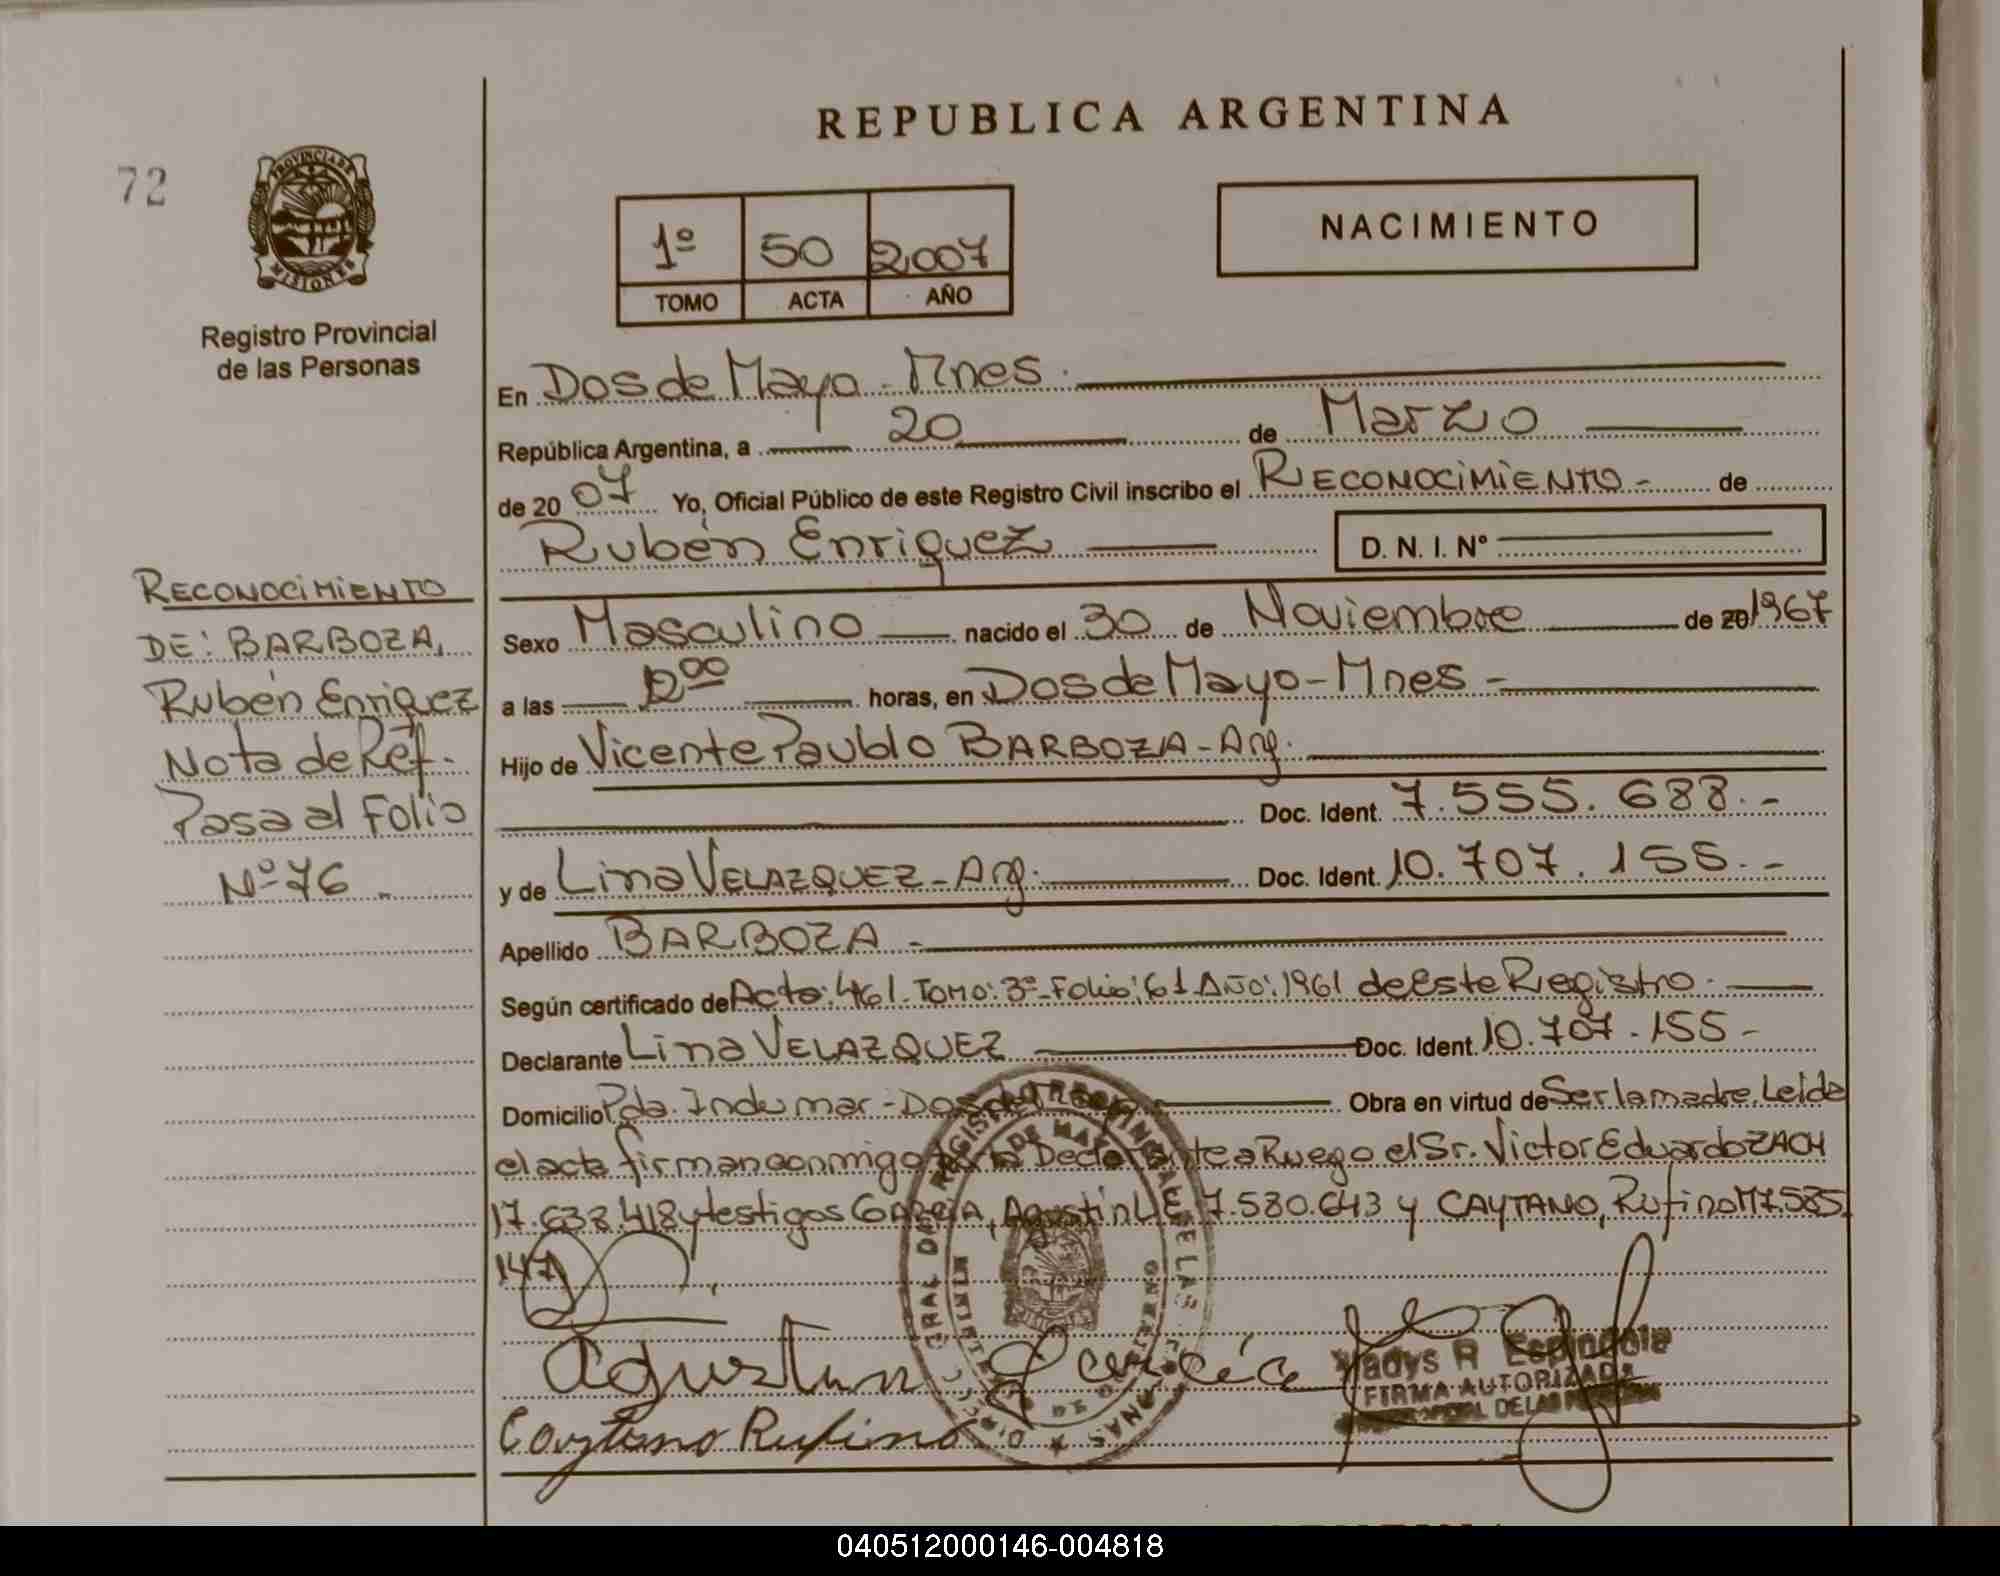 REPUBLICA ARGENTINA
72
PROVINCIA DE MISIONES
Registro Provincial
de las Personas
1º 50 2.007
TOMO ACTA AÑO
NACIMIENTO
En Dos de Mayo - Mnes.
República Argentina, a 20 de Marzo
de 20 07 Yo, Oficial Público de este Registro Civil inscribo el RECONOCIMIENTO - de
Rubén Enriquez D. N. I. Nº
Sexo Masculino nacido el 30 de Noviembre de 20 1967
a las 12 00 horas, en Dos de Mayo - Mnes -
Hijo de Vicente Paublo BARBOZA - Arg.
Doc. Ident. 7.555.688.-
y de Lina VELAZQUEZ - Arg. Doc. Ident. 10.707.155.-
Apellido BARBOZA -
Según certificado de Acta: 461. TOMO: 3º - Folio: 61 AÑO: 1961 de este Registro.
Declarante Lina VELAZQUEZ Doc. Ident. 10.707.155-
Domicilio Pda. Indumar - Dos de Obra en virtud de Ser la madre. Leida
el acta firman conmigo por la Declarante a Ruego el Sr. Victor Eduardo ZACH
17.638.418 y testigos GARCIA, Agustín L.E. 7.580.643 y CAYTANO, Rufino M 7.585.
147
Agustin Garcia
Caytano Rufino
Gladys R Espindola
FIRMA AUTORIZADA
RECONOCIMIENTO
DE: BARBOZA,
Rubén Enriquez
Nota de Ref.
Pasa al Folio
Nº 76.-
040512000146-004818